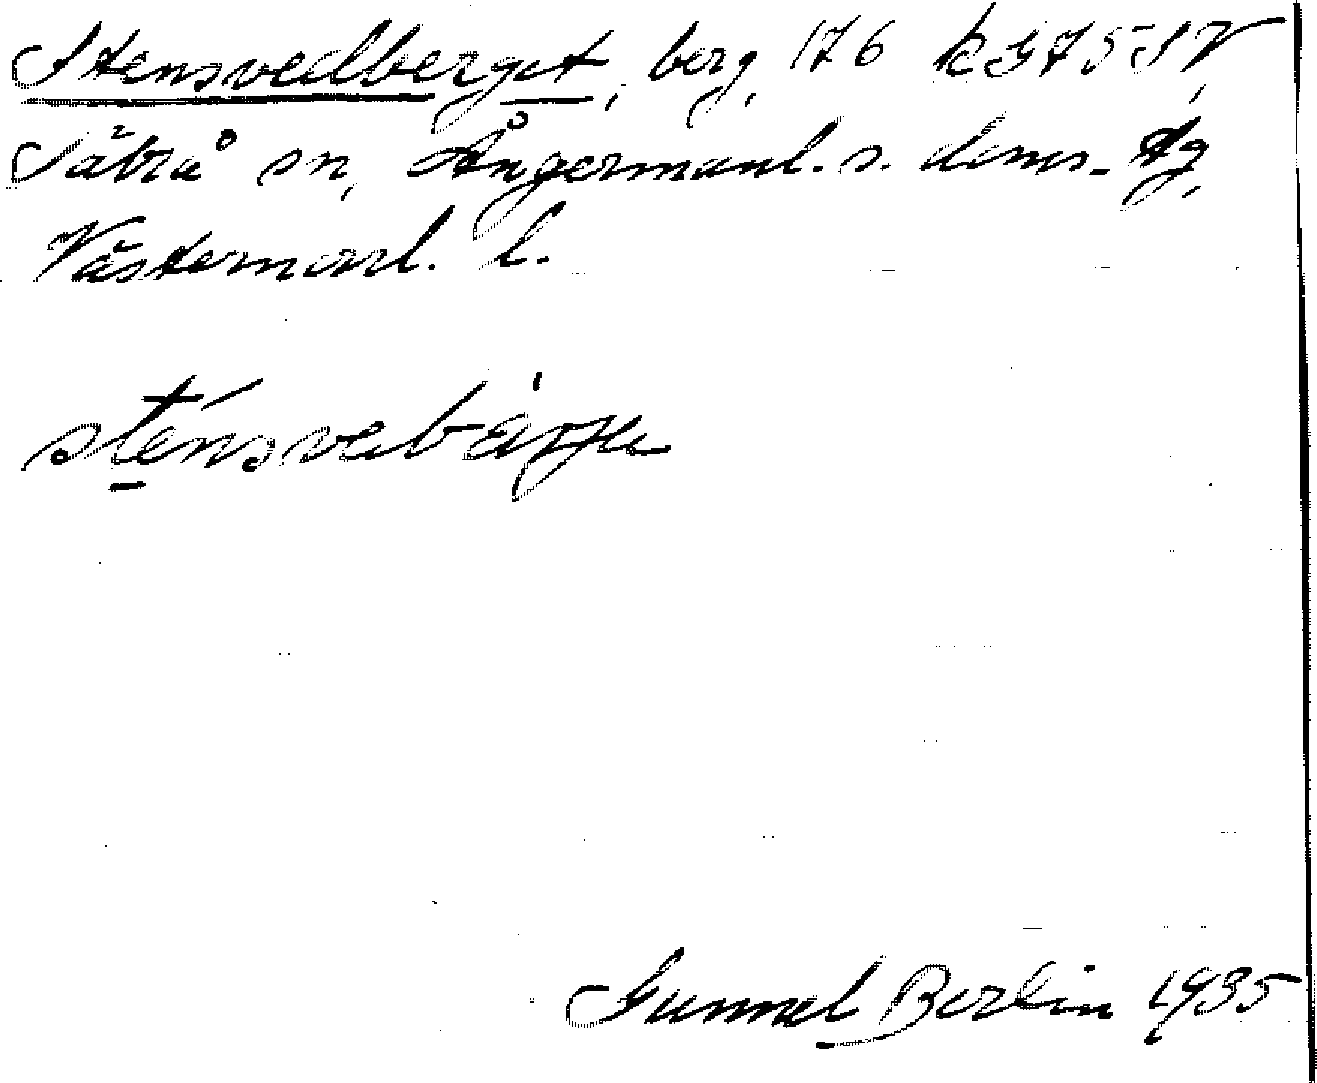 Stensvedberget, berg, 176 k G 75 SV,
Säbrå sn, Ångermanl. s. doms. tg,
Västernorrl. l.
sténsvebärje
Gunnel Berlin 1935